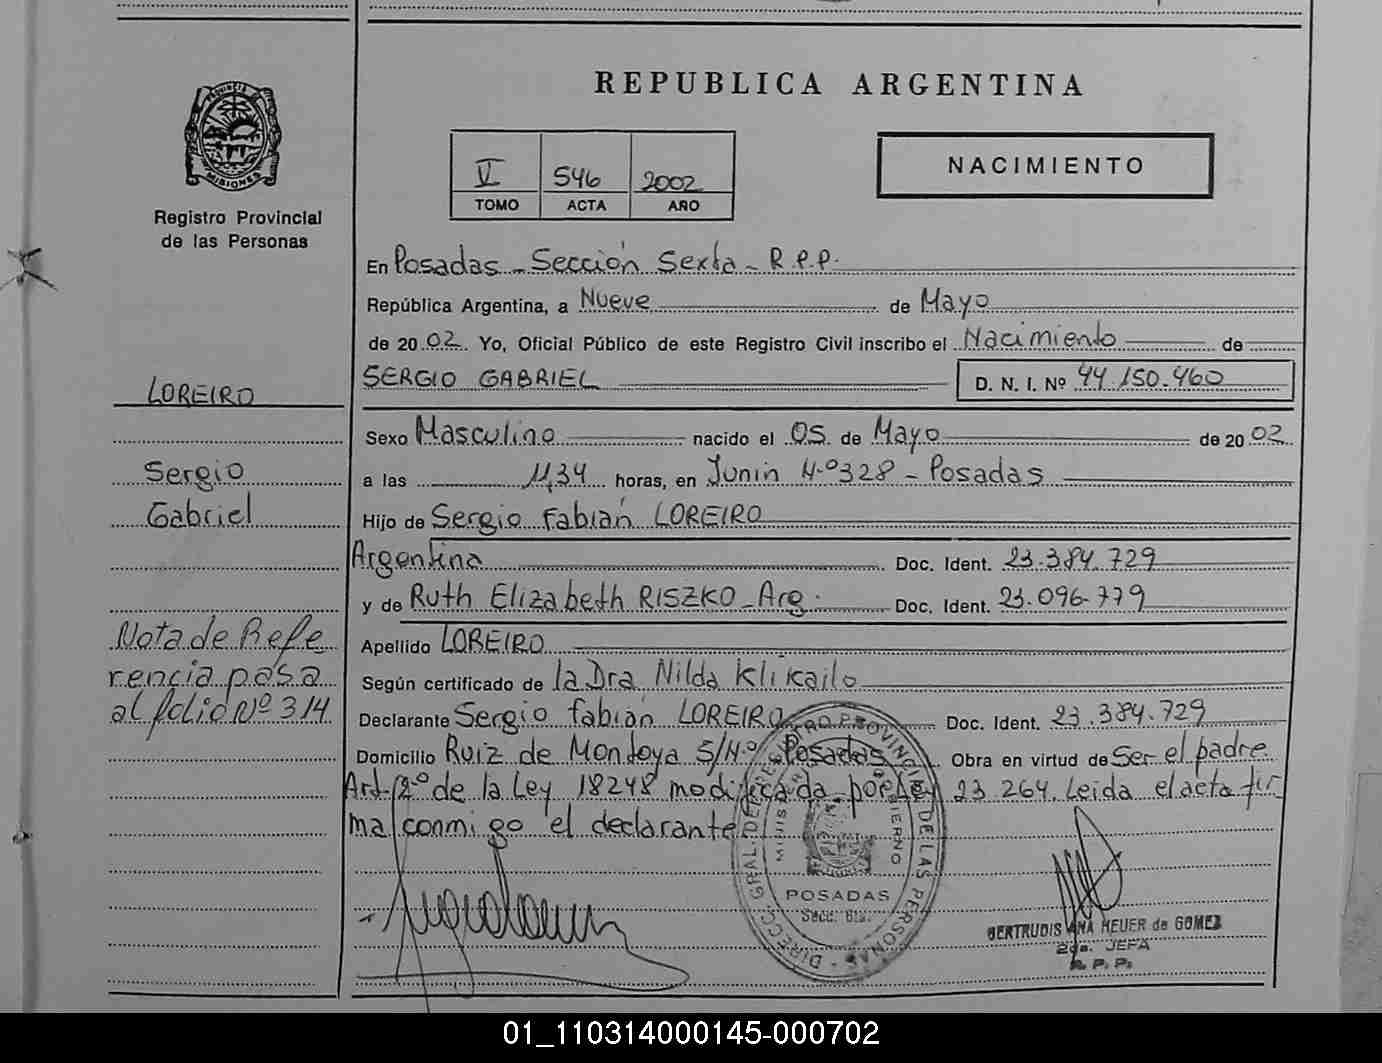 REPUBLICA ARGENTINA
PROVINCIA DE MISIONES
Registro Provincial
de las Personas
VI 546 2002
TOMO ACTA AÑO
NACIMIENTO
En Posadas - Sección Sexta - R.P.P.
República Argentina, a Nueve de Mayo
de 20 02. Yo, Oficial Público de este Registro Civil inscribo el Nacimiento de
SERGIO GABRIEL D. N. I. Nº 44.150.460
LOREIRO
Sergio
Gabriel
Sexo Masculino nacido el 05 de Mayo de 20 02
a las 11,34 horas, en Junin N.º 328 - Posadas
Hijo de Sergio Fabián LOREIRO
Argentina Doc. Ident. 23.384.729
y de Ruth Elizabeth RISZKO - Arg. Doc. Ident. 23.096.779
Apellido LOREIRO
Según certificado de la Dra. Nilda Klikailo
Declarante Sergio fabián LOREIRO Doc. Ident. 23.384.729
Domicilio Ruiz de Montoya S/N.º Posadas Obra en virtud de Ser el padre
Art. 2º de la Ley 18248 modificada por Ley 23.264. Leida el acta fir
ma conmigo el declarante
Nota de Refe
rencia pasa
al folio Nº 314
DIRECC. GRAL. DEL REGISTRO PROVINCIAL DE LAS PERSONAS
MINIST. GOBIERNO
POSADAS
Secc. 6ta.
GERTRUDIS ANA HEUER de GOMEZ
2da. JEFA
R. P. P.
01_110314000145-000702